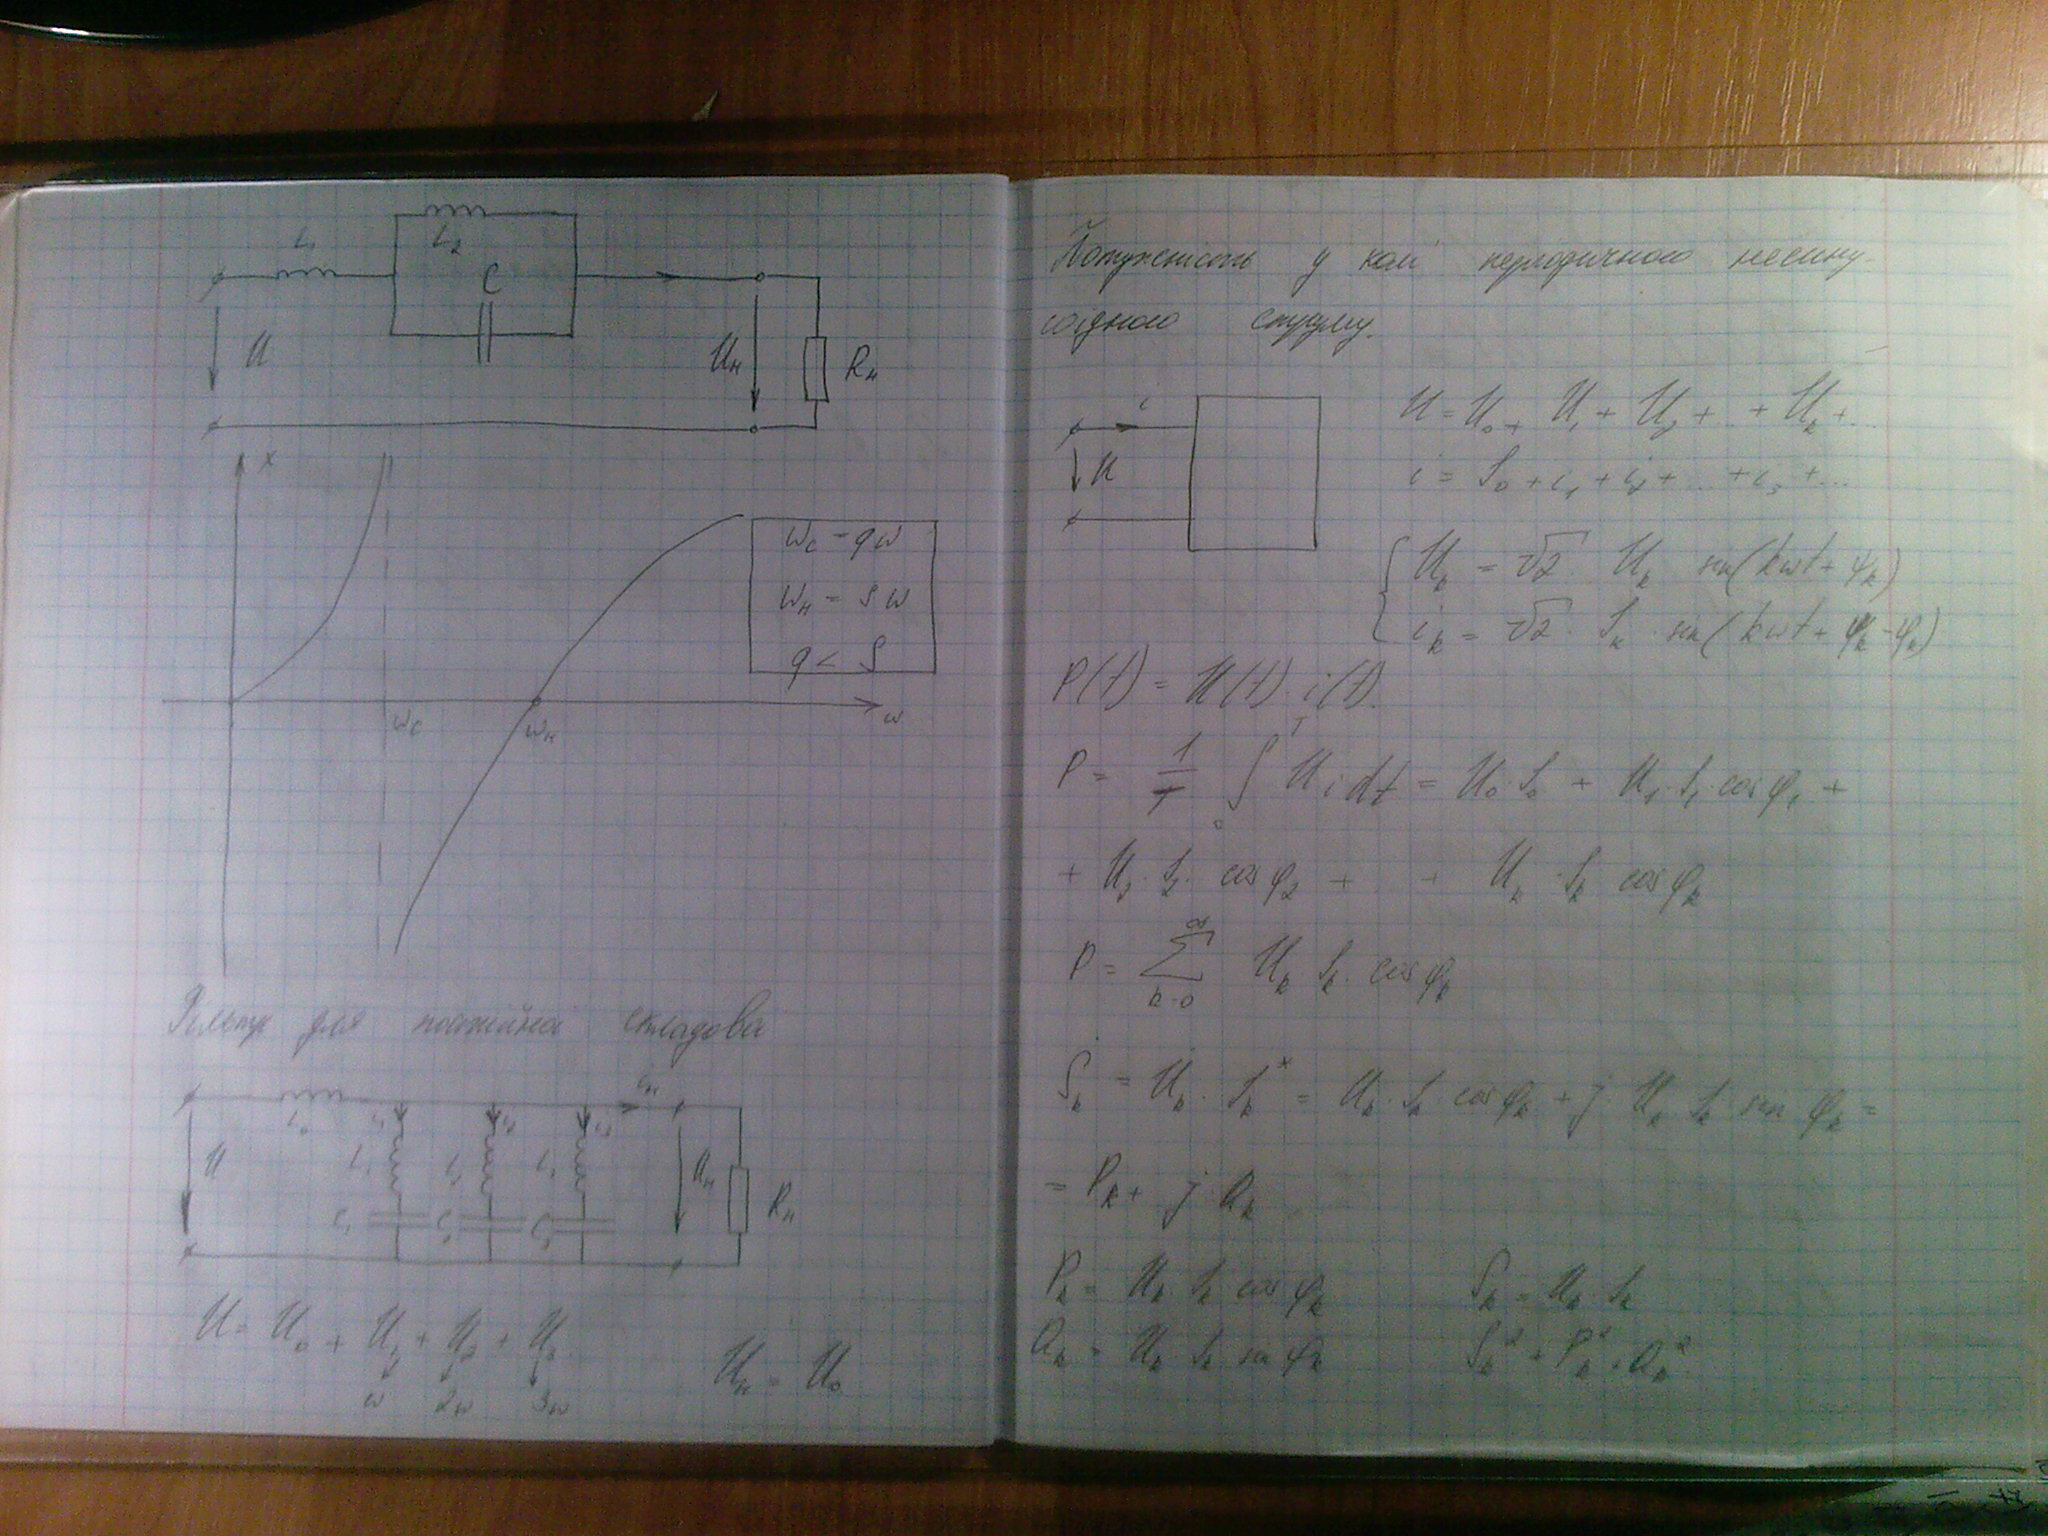 L₁
L₂
C
U
Uн
Rн
x
ωc = qω
ωн = sω
q < s
ωc
ωн
ω
Фільтр для постійної складової
L₀
i₁
i₂
i₃
iн
U
L₁
L₂
L₃
C₁
C₂
C₃
Uн
Rн
U = U₀ + U₁ + U₂ + U₃
ω 2ω 3ω
Uн = U₀
Потужність у колі періодичного несину-
соідного струму.
i
U
U = U₀ + U₁ + U₂ + ... + Uₖ + ...
i = I₀ + i₁ + i₂ + ... + i₃ + ...
Uₖ = √2 · Uₖ sin(kωt + ψₖ)
iₖ = √2 · Iₖ · sin(kωt + ψₖ - φₖ)
P(t) = U(t) · i(t).
P = 1/T ∫₀ᵀ U i dt = U₀ · I₀ + U₁ · I₁ · cos φ₁ +
+ U₂ · I₂ · cos φ₂ + ... + Uₖ · Iₖ cos φₖ
P = ∑ₖ₌₀^∞ Uₖ Iₖ · cos φₖ
Ṡₖ = U̇ₖ · Iₖ* = Uₖ · Iₖ cos φₖ + j Uₖ Iₖ sin φₖ =
= Pₖ + j Qₖ
Pₖ = Uₖ · Iₖ cos φₖ Sₖ = Uₖ · Iₖ
Qₖ = Uₖ Iₖ sin φₖ Sₖ² = Pₖ² + Qₖ²